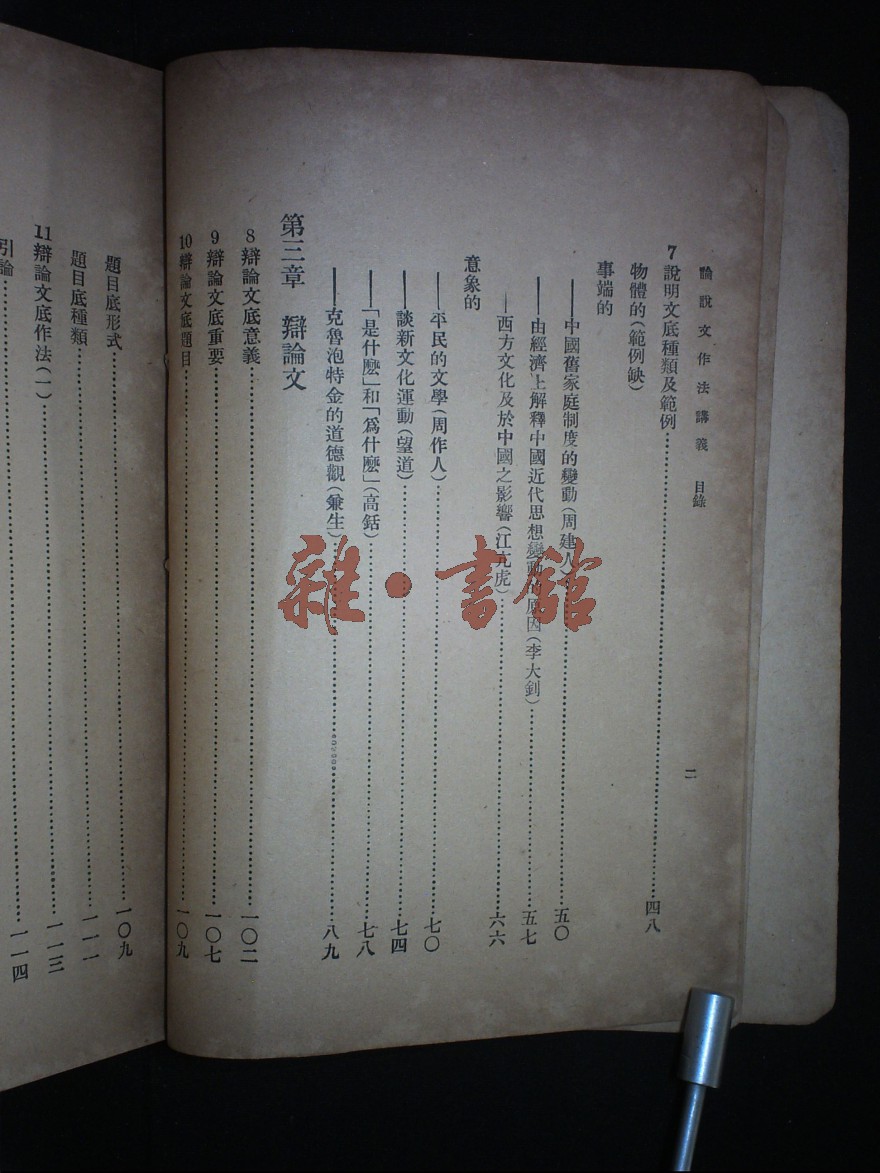 論說文作法講義 目錄
二
7 說明文底種類及範例 四八
物體的(範例缺)
事端的
——中國舊家庭制度的變動(周建人) 五〇
——由經濟上解釋中國近代思想變動的原因(李大釗) 五七
——西方文化及於中國之影響(江亢虎) 六六
意象的
——平民的文學(周作人) 七〇
——談新文化運動(望道) 七四
——「是什麽」和「爲什麽」(高銛) 七八
——克魯泡特金的道德觀(兼生) 八九
第三章 辯論文
8 辯論文底意義 一〇二
9 辯論文底重要 一〇七
10 辯論文底題目 一〇九
題目底形式 一〇九
題目底種類 一一一
11 辯論文底作法(一) 一一三
引論 一一四
雜·書館